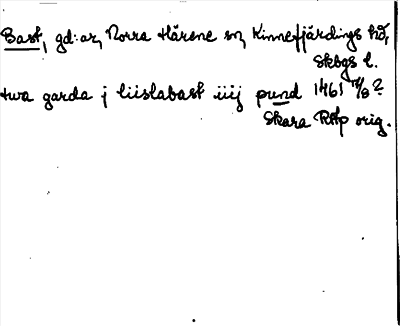 Bast, gd:ar, Norra Härene sn, Kinnefjärdings hd,
Skbgs l.
twa garda j liislabast iiij pund 1461 14/8 ?
Skara RAp orig.